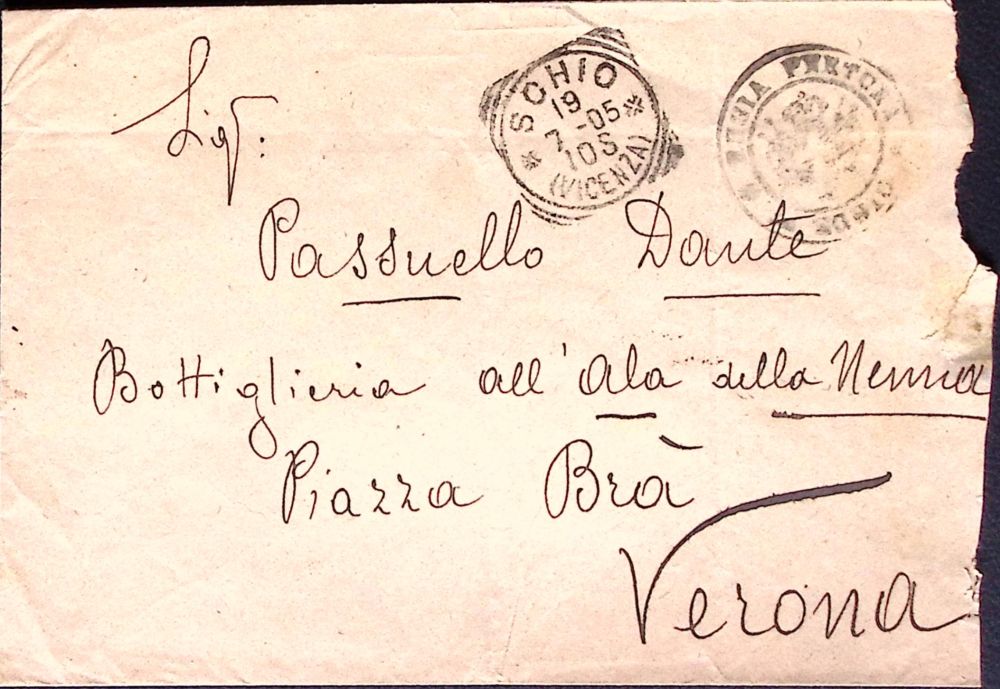 SCHIO
19
7 -05
10S
(VICENZA)
Sig.:
Passuello Dante
Bottiglieria all'Ala della
Piazza Brà
Verona